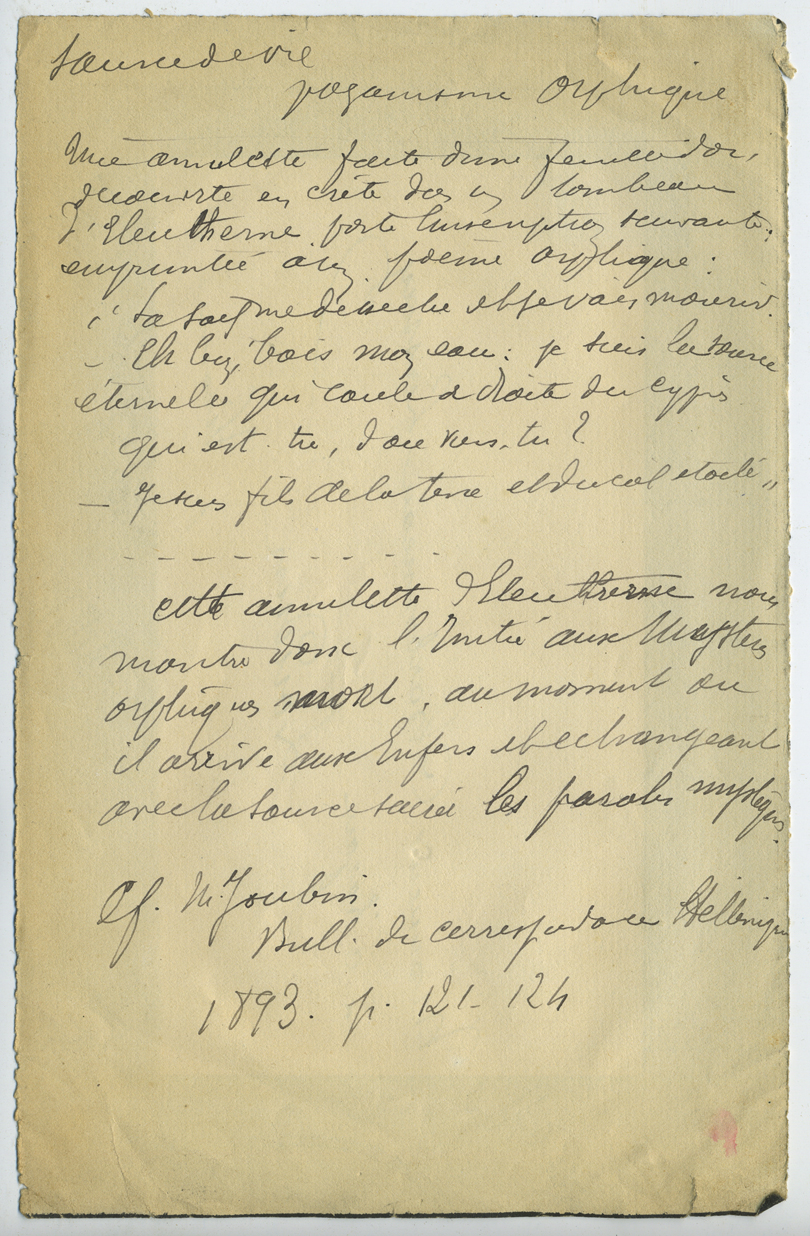 Source de vie
paganisme Orphique
Une amulette faite d'une feuille d'or,
découverte en crète dans un tombeau
d'Eleutherne porte l'inscription suivante,
empruntée à un poème orphique :
" La soif me dessèche et je vais mourir.
– Eh bien, bois mon eau : je suis la source
éternelle qui coule à droite du cyprès
qui est-tu, d'ou viens-tu ?
— Je suis fils de la terre et du ciel étoilé "
– – – – – – – – – –
cette amulette d'Eleutherne nous
montre donc l'Initié aux Mystères
orphiques mort, au moment ou
il arrive aux Enfers et echangeant
avec la source sacrée les paroles mystiques.
Cf. M. Joubin.
Bull. de correspondance Hellénique
1893. p. 121–124